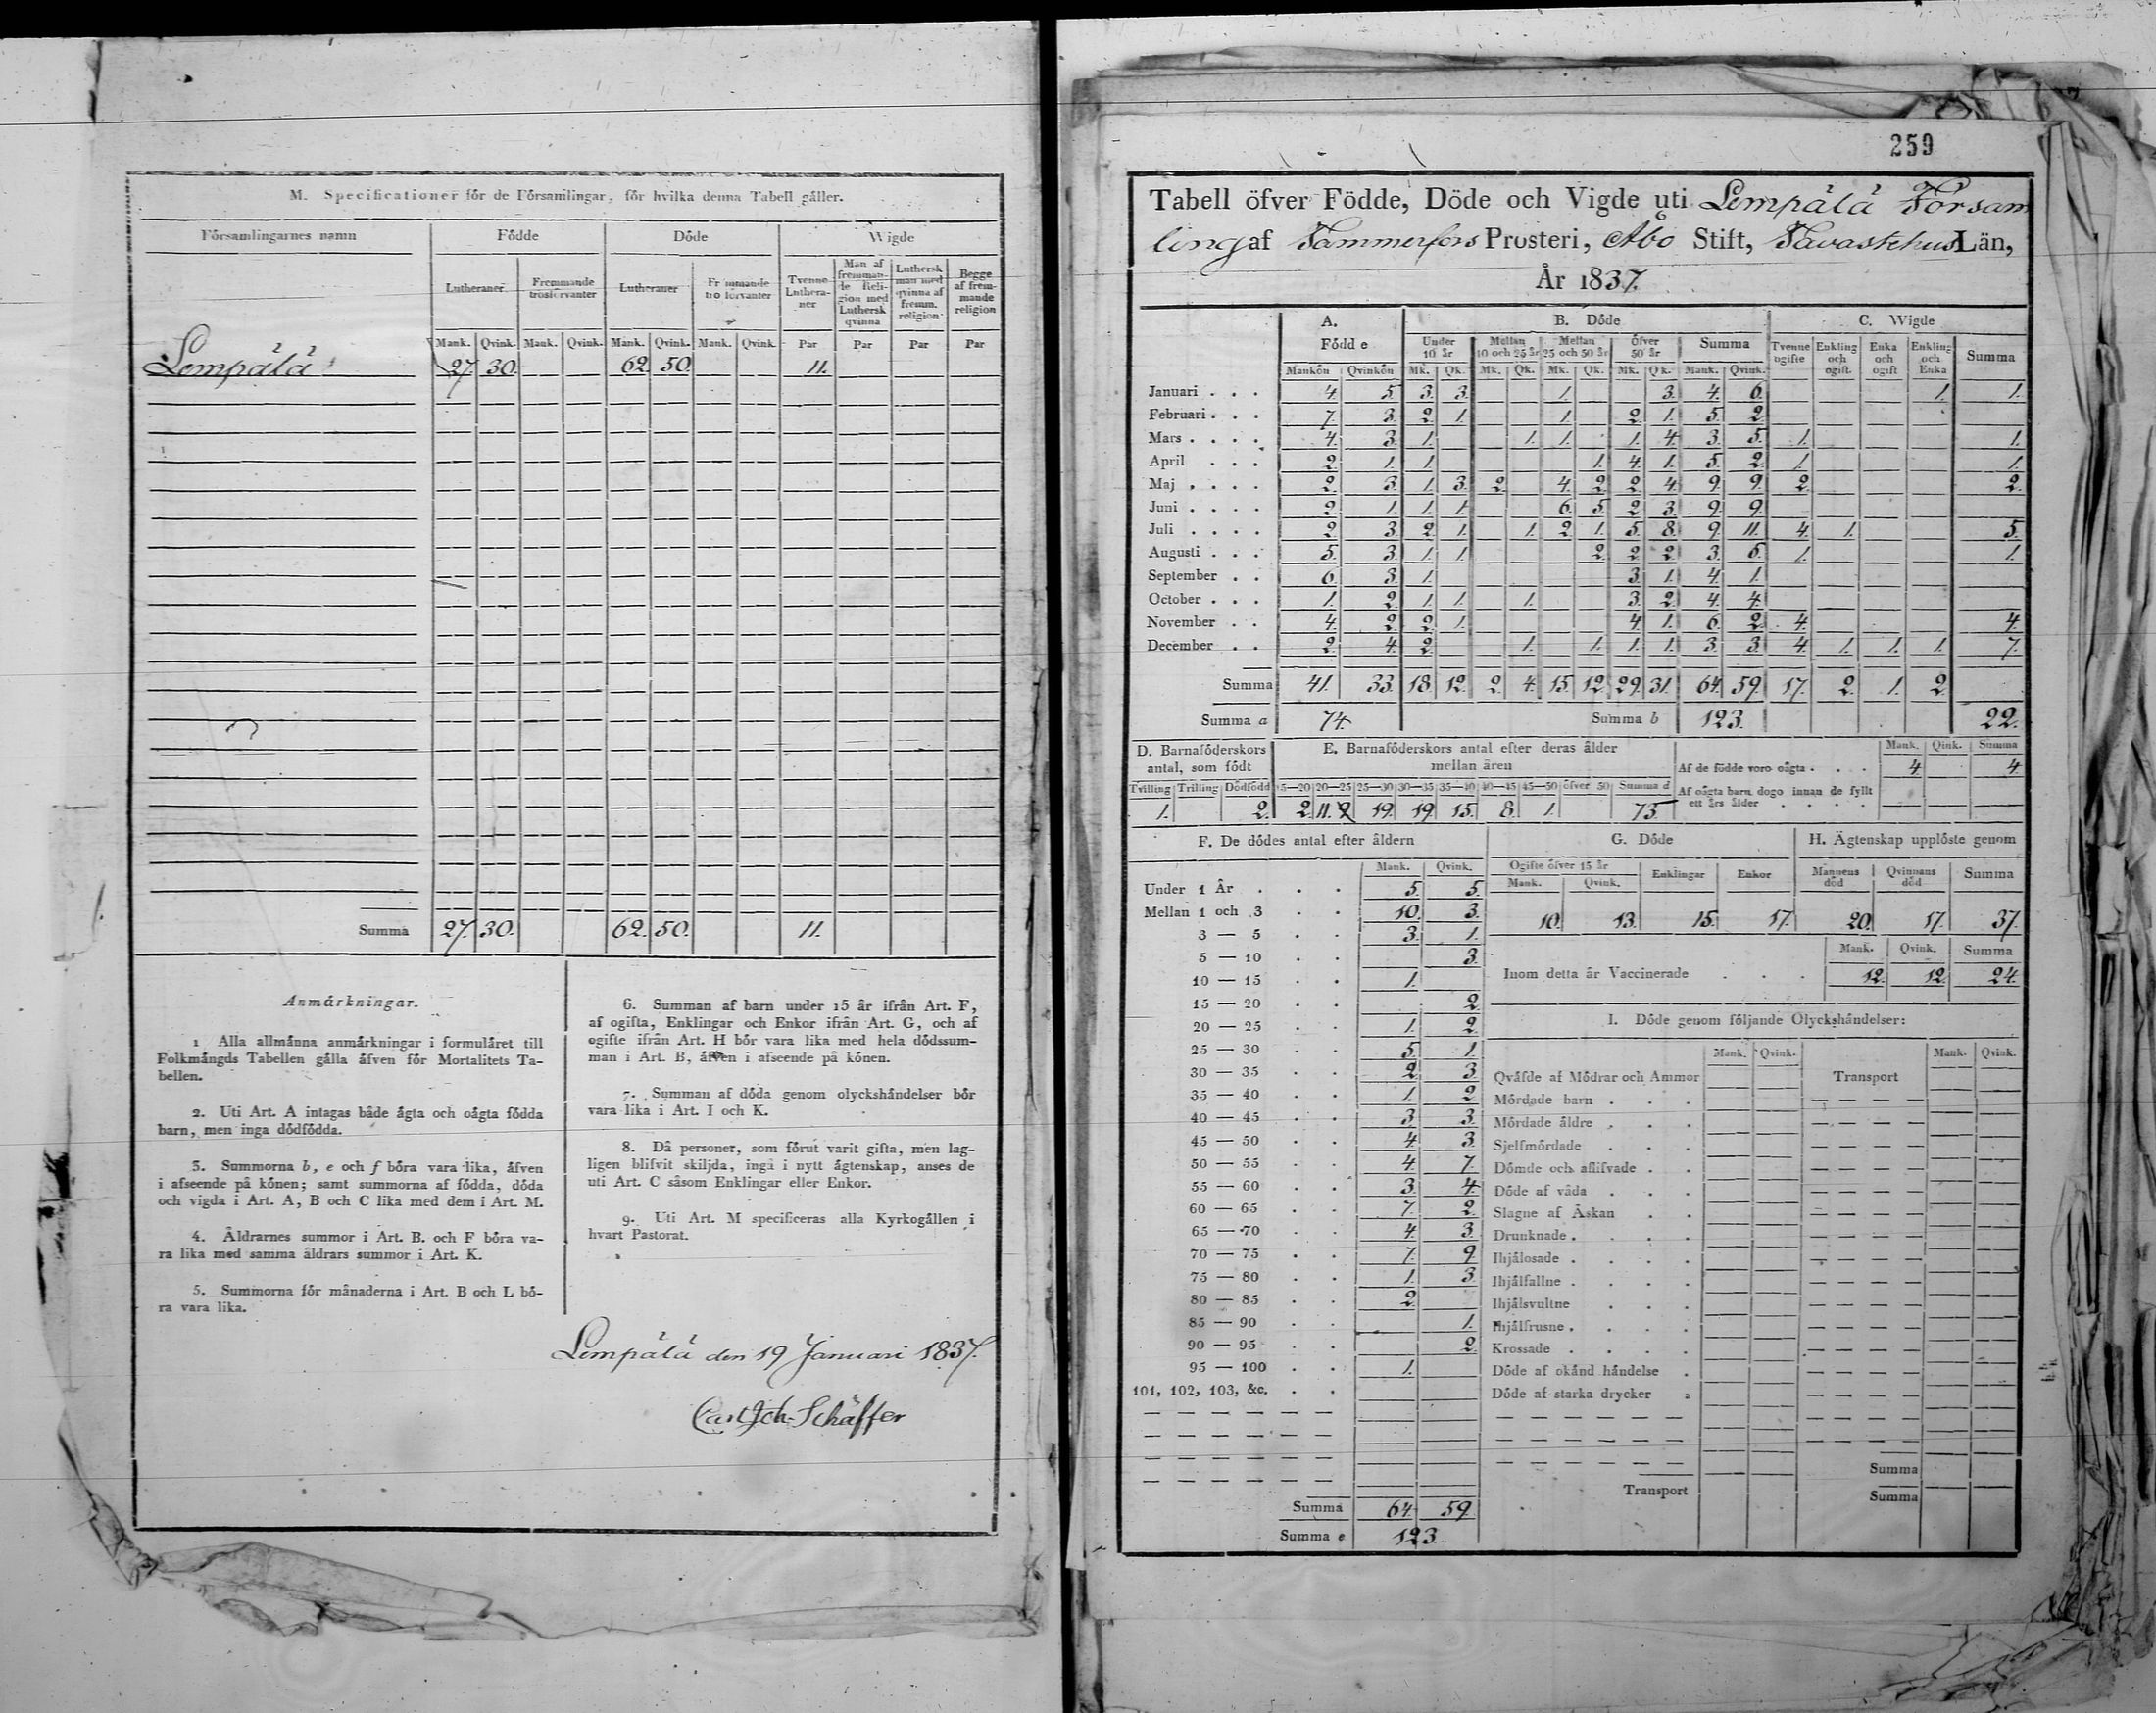 M. Specificationer för de Församlingar, för hvilka denna Tabell gäller.
Församlingarnes namn Födde Döde Wigde
Lutheraner Fremmande trosförvanter Lutheraner Fremmande trosförvanter Tvenne Lutheraner Man af fremmande Religion med Luthersk qvinna Luthersk man med qvinna af fremm. religion Begge af fremmande religion
Mank. Qvink. Mank. Qvink. Mank. Qvink. Mank. Qvink. Par Par Par Par
Lempälä 27. 30. 62. 50. 11.
Summa 27. 30. 62. 50. 11.
Anmärkningar.
1 Alla allmänna anmärkningar i formuläret till
Folkmängds Tabellen gälla äfven för Mortalitets Ta-
bellen.
2. Uti Art. A intagas både ägta och oägta födda
barn, men inga dödfödda.
3. Summorna b, e och f böra vara lika, äfven
i afseende på könen; samt summorna af födda, döda
och vigda i Art. A, B och C lika med dem i Art. M.
4. Åldrarnes summor i Art. B. och F böra va-
ra lika med samma åldrars summor i Art. K.
5. Summorna för månaderna i Art. B och L bö-
ra vara lika.
6. Summan af barn under 15 år ifrån Art. F,
af ogifta, Enklingar och Enkor ifrån Art. G, och af
ogifte ifrån Art. H bör vara lika med hela dödssum-
man i Art. B, äfven i afseende på könen.
7. Summan af döda genom olyckshändelser bör
vara lika i Art. I och K.
8. Då personer, som förut varit gifta, men lag-
ligen blifvit skiljda, ingå i nytt ägtenskap, anses de
uti Art. C såsom Enklingar eller Enkor.
9. Uti Art. M specificeras alla Kyrkogällen i
hvart Pastorat.
Lempälä den 19 Januari 1837.
Carl Joh. Schäffer
259
Tabell öfver Födde, Döde och Vigde uti Lempälä Försam
ling af Tammerfors Prosteri, Åbo Stift, Tavastehus Län,
År 1837.
A. Födde B. Döde C. Wigde
Under 10 år Mellan 10 och 25 år Mellan 25 och 50 år Öfver 50 år Summa Tvenne ogifte Enkling och ogift. Enka och ogift Enkling och Enka Summa
Mankön Qvinkön Mk. Qk. Mk. Qk. Mk. Qk. Mk. Qk. Mank. Qvink.
Januari . . . 4. 5. 3. 3. 1. 3. 4. 6. 1. 1.
Februari . . . 7. 3. 2. 1. 1. 2. 1. 5. 2.
Mars . . . . 4. 3. 1. 1. 1. 1. 4. 3. 5. 1. 1.
April . . . 2. 1. 1. 1. 4. 1. 5. 2. 1. 1.
Maj . . . . 2. 3. 1. 3. 2. 4. 2. 2. 4. 9. 9. 2. 2.
Juni . . . . 2. 1. 1. 1. 6. 5. 2. 3. 9. 9.
Juli . . . . 2. 3. 2. 1. 1. 2. 1. 5. 8. 9. 11. 4. 1. 5.
Augusti . . . 5. 3. 1. 1. 2. 2. 2. 3. 5. 1. 1.
September . . 6. 3. 1. 3. 1. 4. 1.
October . . . 1. 2. 1. 1. 1. 3. 2. 4. 4.
November . . 4. 2. 2. 1. 4. 1. 6. 2. 4. 4.
December . . 2. 4. 2. 1. 1. 1. 1. 3. 3. 4. 1. 1. 1. 7.
Summa 41. 33. 18. 12. 2. 4. 15. 12. 29. 31. 64. 59. 17. 2. 1. 2.
Summa a 74. Summa b 123. 22.
D. Barnaföderskors antal, som födt
Tvilling Trilling Dödfödd
1. 2.
E. Barnaföderskors antal efter deras ålder
mellan åren
15—20 20—25 25—30 30—35 35—40 40—45 45—50 öfver 50 Summa d
2. 11. 19. 19. 15. 8. 1. 75.
Mank. Qink. Summa
Af de födde voro oägta . . . 4. 4.
Af oägta barn dogo innan de fyllt
ett års ålder . . . .
F. De dödes antal efter åldern
Mank. Qvink.
Under 1 År . . . 5. 5.
Mellan 1 och 3 . . 10. 3.
3 — 5 . . 3. 1.
5 — 10 . . 3.
10 — 15 . . 1.
15 — 20 . . 2.
20 — 25 . . 1. 2.
25 — 30 . . 5. 1.
30 — 35 . . 2. 3.
35 — 40 . . 1. 2.
40 — 45 . . 3. 3.
45 — 50 . . 4. 3.
50 — 55 . . 4. 7.
55 — 60 . . 3. 4.
60 — 65 . . 7. 2.
65 — 70 . . 4. 3.
70 — 75 . . 7. 9.
75 — 80 . . 1. 3.
80 — 85 . . 2.
85 — 90 . . 1.
90 — 95 . . 2.
95 — 100 . . 1.
101, 102, 103, &c. . .
Summa 64. 59.
Summa e 123.
G. Döde
Ogifte öfver 15 år Enklingar Enkor
Mank. Qvink.
10. 13. 15. 17.
H. Ägtenskap upplöste genom
Mannens död Qvinnans död Summa
20. 17. 37.
Mank. Qvink. Summa
Inom detta år Vaccinerade . . . 12. 12. 24.
I. Döde genom följande Olyckshändelser:
Mank. Qvink. Mank. Qvink.
Qväfde af Mödrar och Ammor Transport
Mördade barn . . .
Mördade äldre . . .
Sjelfmördade . .
Dömde och aflifvade . .
Döde af våda . . .
Slagne af Åskan . .
Drunknade . . . .
Ihjälosade . . . .
Ihjälfallne . . . .
Ihjälsvultne . . .
Ihjälfrusne . . . .
Krossade . . . .
Döde af okänd händelse .
Döde af starka drycker .
Summa
Transport Summa